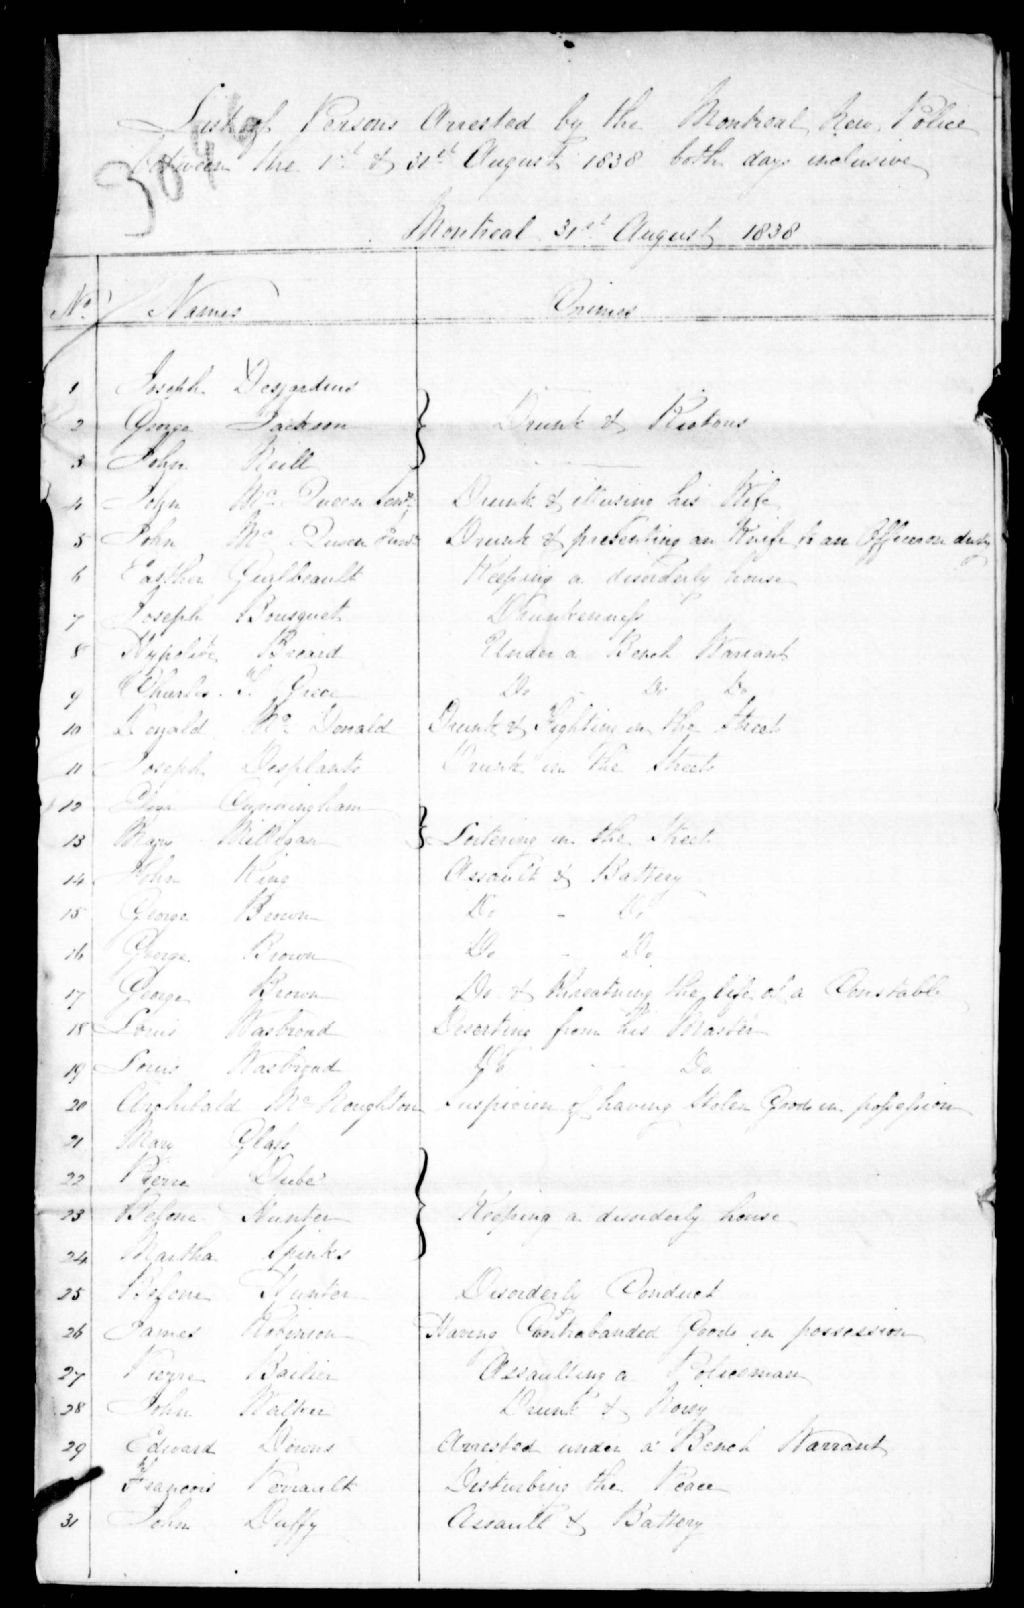 List of Persons Arrested by the Montreal New Police
between the 1st & 31st August 1838 both days inclusive
Montreal 31st August 1838
No. Names Crimes
1 Joseph Desjardins
2 George Jackson Drunk & Riotous
3 John Neill
4 John Mc Queen Senr. Drunk & illusing his Wife
5 John Mc Queen Junr Drunk & presenting an Knife to an Officer on duty
6 Easther Guilbeault Keeping a disorderly house
7 Joseph Bousquet Drunkenness
8 Hypolite Under a Bench Warrant
9 Charles Do Do Do
10 Mc Donald Drunk & Fighting in the Street
11 Joseph Desplants Drunk in the Streets
12 Cunningham
13 Mary Millegan Loitering in the Street
14 John King Assault & Battery
15 George Brown Do - Do
16 George Brown Do - Do
17 George Brown Do & threatning the life of a Constable
18 Louis Wasbrond Deserting from his Master
19 Louis Wasbrond Do - - Do
20 Archibald Mc Noughton Suspicion of having Stolen Goods in possession
21 Mary Glass
22 Pierre Dubé
23 Hunter Keeping a disorderly house
24 Martha Spinks
25 Hunter Disorderly Conduct
26 James Robinson Having Contrabanded Goods in possession
27 Assaulting a Policeman
28 John Walker Drunk & Noisy
29 Edward Downs Arrested under a Bench Warrant
François Perrault Disturbing the Peace
31 John Duffy Assault & Battery